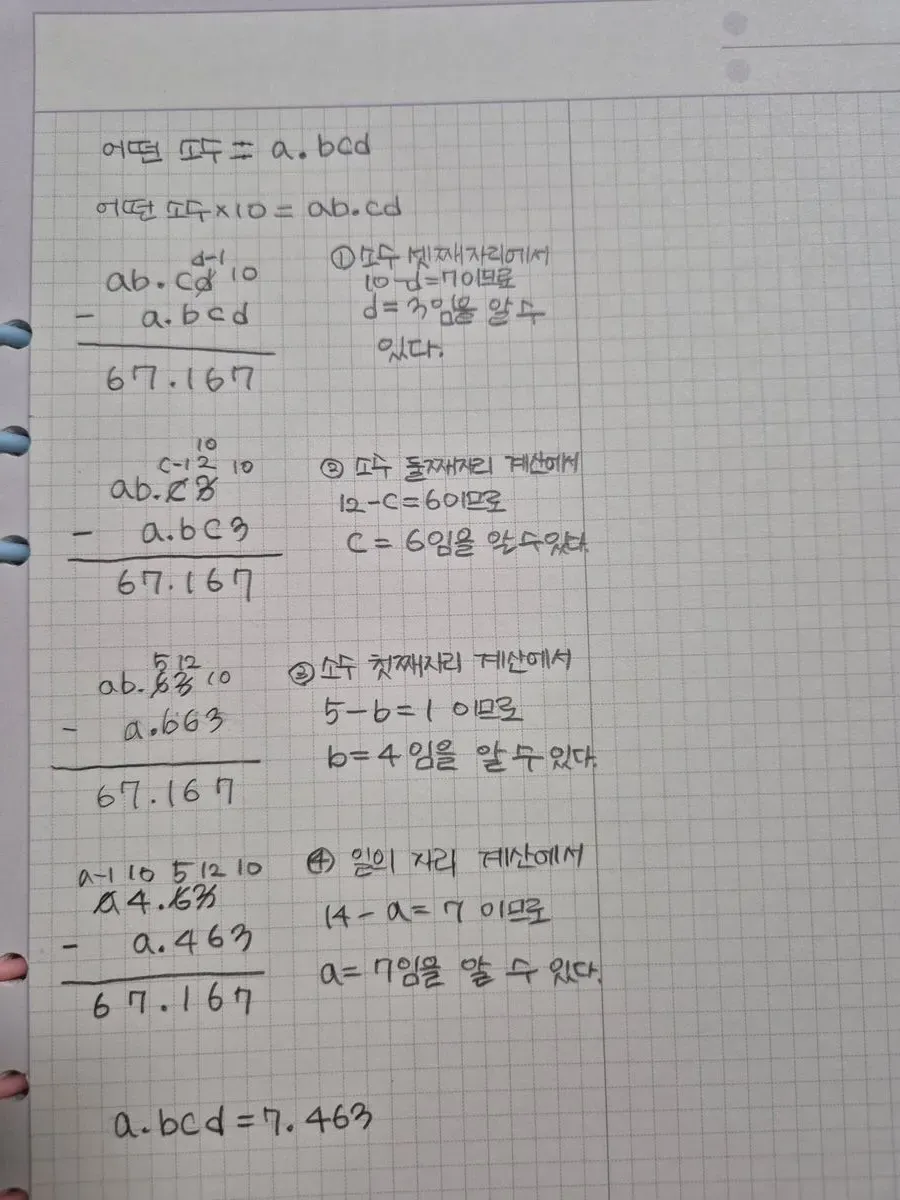 어떤 소수 = a.bcd
어떤 소수×10 = ab.cd
d-1
ab.cd 10
- a.bcd
67.167
① 소수 셋째자리에서
10-d=7이므로
d=3임을 알 수
있다.
10
c-1 2 10
ab.c3
- a.bc3
67.167
② 소수 둘째자리 계산에서
12-c=6이므로
c=6임을 알 수 있다.
5 12
ab.63 10
- a.b63
67.167
③ 소수 첫째자리 계산에서
5-b=1 이므로
b=4임을 알 수 있다.
a-1 10 5 12 10
a4.63
- a.463
67.167
④ 일의 자리 계산에서
14-a=7 이므로
a=7임을 알 수 있다.
a.bcd=7.463